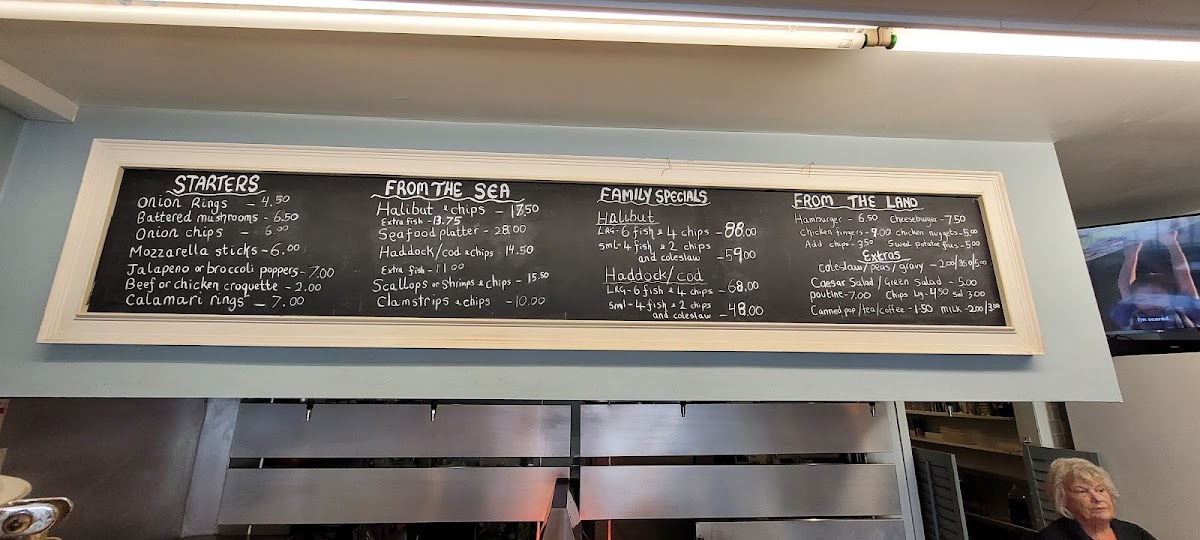 STARTERS
Onion Rings - 4.50
Battered mushrooms - 6.50
Onion chips - 6.00
Mozzarella sticks - 6.00
Jalapeno or broccoli poppers - 7.00
Beef or chicken croquette - 2.00
Calamari rings - 7.00
FROM THE SEA
Halibut & chips - 17.50
Extra fish - 13.75
Seafood platter - 28.00
Haddock/cod & chips - 14.50
Extra fish - 11.00
Scallops or Shrimps & chips - 15.50
Clamstrips & chips - 10.00
FAMILY SPECIALS
Halibut
LRG - 6 fish & 4 chips - 88.00
sml - 4 fish & 2 chips
and coleslaw - 59.00
Haddock/cod
LRG - 6 fish & 4 chips - 68.00
sml - 4 fish & 2 chips
and coleslaw - 48.00
FROM THE LAND
Hamburger - 6.50 Cheeseburger - 7.50
Chicken fingers - 9.00 chicken nuggets - 5.00
Add chips - 3.50 Sweet potatoe fries - 5.00
Extras
coleslaw/peas/gravy - 2.00/3.50/5.00
Caesar Salad/Green Salad - 5.00
poutine - 7.00 Chips Lg - 4.50 sml 3.00
Canned pop/tea/coffee - 1.50 MILK - 2.00/3.00
I'm scared.